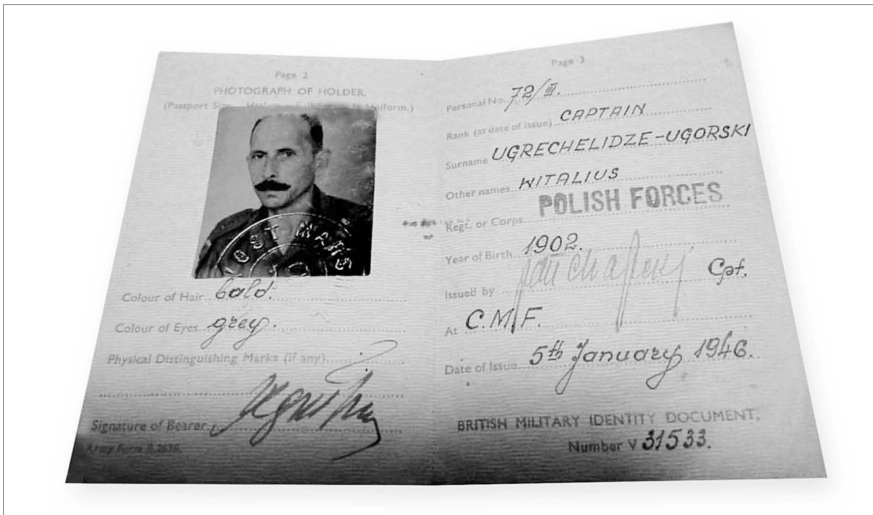 Page 2
PHOTOGRAPH OF HOLDER.
(Passport Size
Uniform.)
Colour of Hair bald.
Colour of Eyes grey.
Physical Distinguishing Marks (if any)
Signature of Bearer
Army Form B.2636.
Page 3
Personal No. 72/III.
Rank (at date of issue) CAPTAIN
Surname UGRECHELIDZE-UGORSKI
Other names WITALIUS
Regt. or Corps POLISH FORCES
Year of Birth 1902.
Issued by Cpt.
At C.M.F.
Date of Issue 5th January 1946.
BRITISH MILITARY IDENTITY DOCUMENT.
Number V 31533.